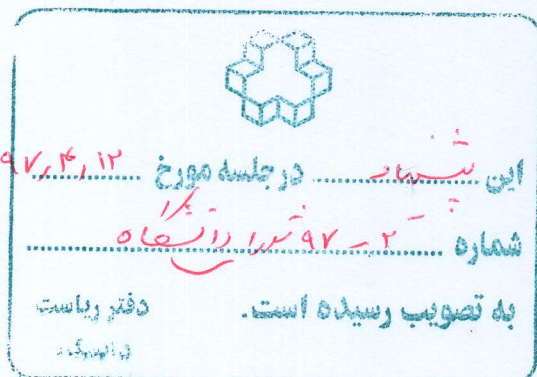 این پیشنهاد در جلسه مورخ ۹۷,۴,۱۲
شماره ۲ - ۹۷ شورا دانشگاه
به تصویب رسیده است.
دفتر ریاست